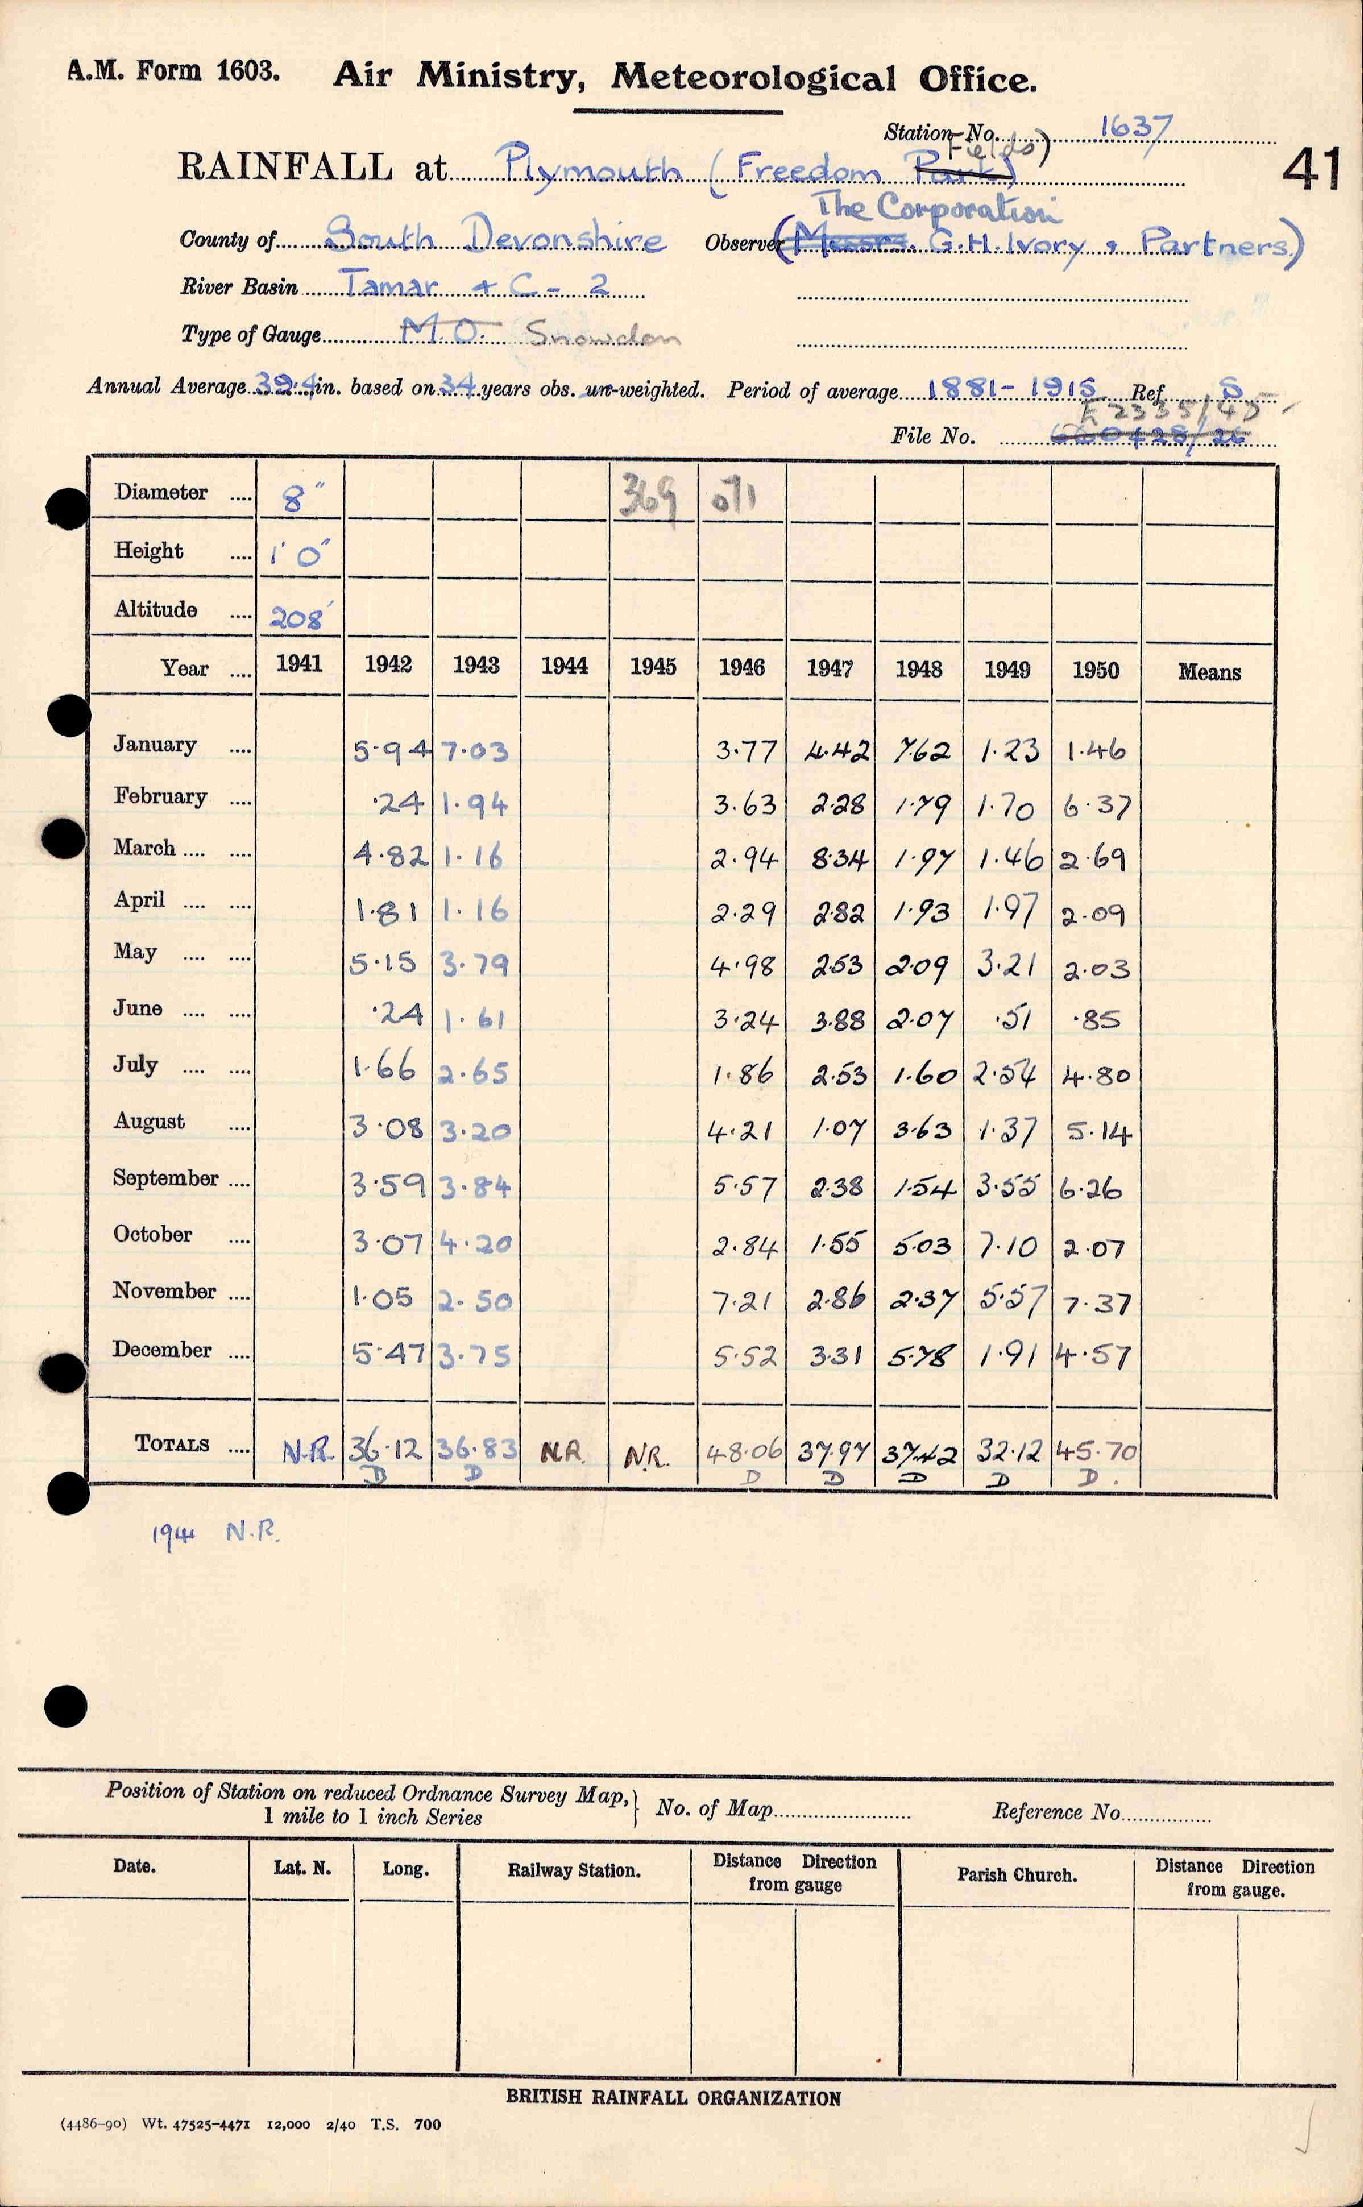 A.M. Form 1603. Air Ministry, Meteorological Office.
Station No. 1637
41
Fields)
RAINFALL at Plymouth (Freedom Park)
The Corporation
County of South Devonshire Observer (Messrs. G.H. Ivory & Partners)
River Basin Tamar & C - 2
Type of Gauge M.O. Snowdon
Annual Average 39.4 in. based on 34 years obs. un-weighted. Period of average 1881-1915 Ref. S
File No.
Diameter .... 8" 369 071
Height .... 1' 0"
Altitude .... 208'
Year .... 1941 1942 1943 1944 1945 1946 1947 1948 1949 1950 Means
January .... 5.94 7.03 3.77 4.42 7.62 1.23 1.46
February .... .24 1.94 3.63 2.28 1.79 1.70 6.37
March .... .... 4.82 1.16 2.94 8.34 1.97 1.46 2.69
April .... .... 1.81 1.16 2.29 2.82 1.93 1.97 2.09
May .... .... 5.15 3.79 4.98 2.53 2.09 3.21 2.03
June .... .... .24 1.61 3.24 3.88 2.07 .51 .85
July .... .... 1.66 2.65 1.86 2.53 1.60 2.54 4.80
August .... 3.08 3.20 4.21 1.07 3.63 1.37 5.14
September .... 3.59 3.84 5.57 2.38 1.54 3.55 6.26
October .... 3.07 4.20 2.84 1.55 5.03 7.10 2.07
November .... 1.05 2.50 7.21 2.86 2.37 5.57 7.37
December .... 5.47 3.75 5.52 3.31 5.78 1.91 4.57
TOTALS .... N.R. 36.12 36.83 N.R. N.R. 48.06 37.97 37.42 32.12 45.70
D D D D D D D.
1941 N.R.
Position of Station on reduced Ordnance Survey Map, } No. of Map Reference No
1 mile to 1 inch Series
Date. Lat. N. Long. Railway Station. Distance Direction from gauge Parish Church. Distance Direction from gauge.
BRITISH RAINFALL ORGANIZATION
(4486-90) Wt. 47525-4471 12,000 2/40 T.S. 700